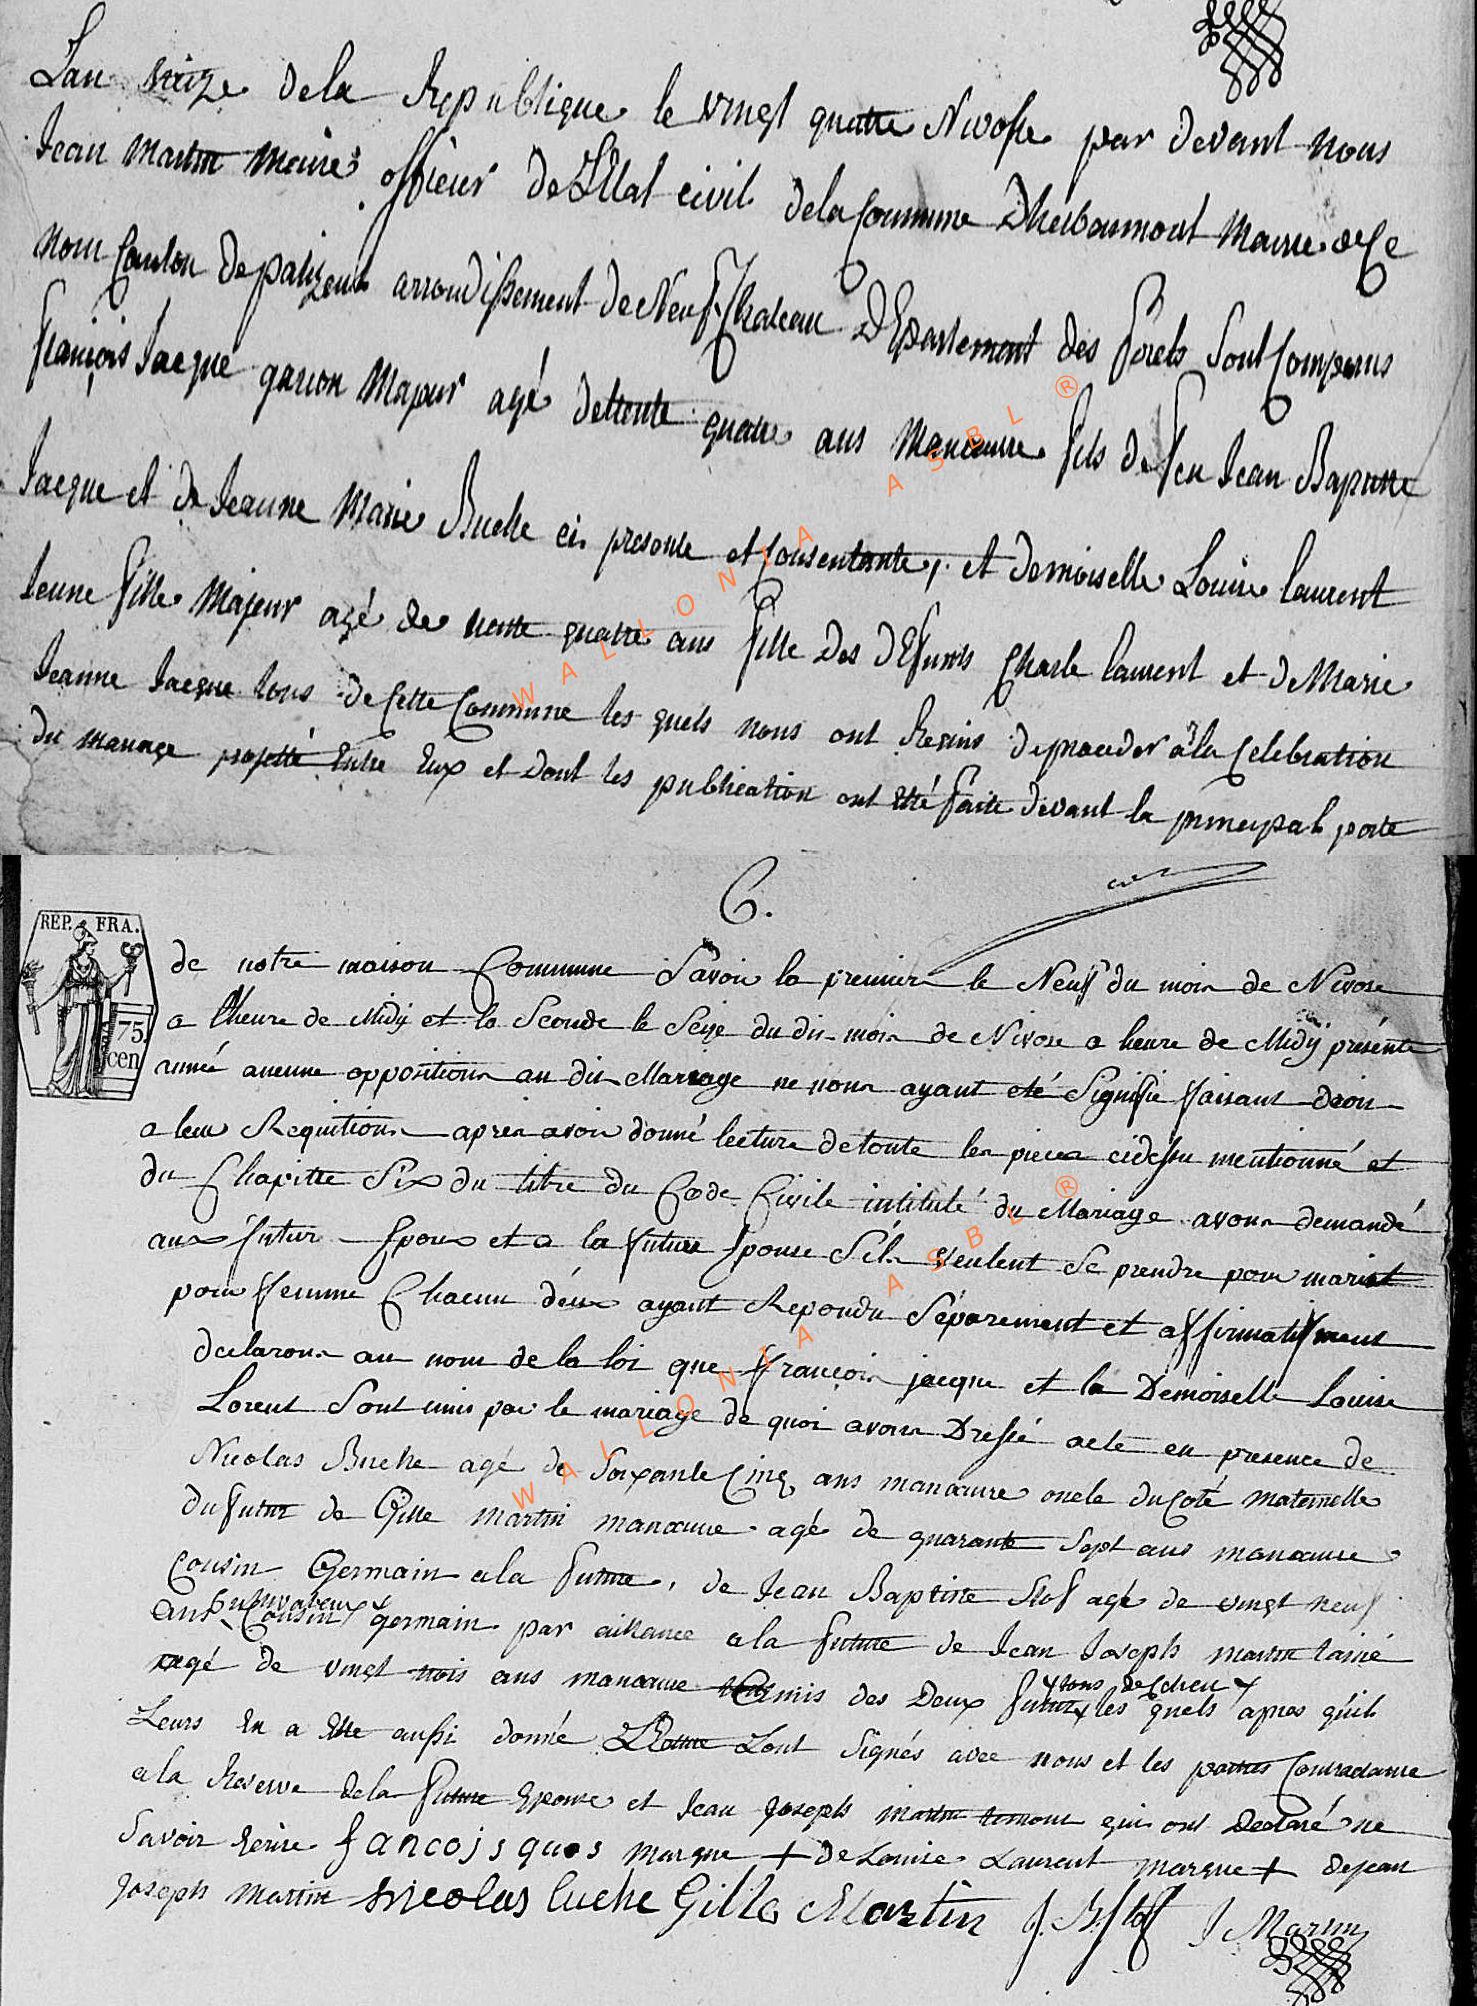 Lan treize dela Republique le vingt quatre Nivosse par devant nous
Jean Martin Maire officier de L'Etat civil dela Commune Dherbeumont Mairie de Ce
nom Canton de palizeul arrondissement de Neuf Chateau DEpartement des forets Sont Comparus
françois Jacque garcon Majeur agé de trente quatre ans Manœuvre fils de feu Jean Baptiste
Jacque et de Jeanne Marie Buche ci presente et Consentante, et demoiselle Louise laurent
Jeune fille Majeur agé de trente quatre ans fille des defunts Charle laurent et de Marie
Jeanne Jacque tous de Cette Commune les quels nous ont Requis de proceder à la Celebration
du mariage projetté Entre Eux et dont les publication ont etté faite devant la principal porte
6.
REP. FRA.
75.
cen
de notre maison Commune Savoir la premiere le Neuf du mois de Nivose
a l'heure de Midy et la Seconde le Seize du dit mois de Nivose a heure de Midy présente
année aucune opposition au dit Mariage ne nous ayant eté Signifie faisant droit
a leur Requition apres avoir donné lecture de toute les pieces cidessu mentionné et
du Chapitte Six du titre du Code Civile intitulé du Mariage avons demandé
aux futur Epoux et a la future Epouse S'ils veulent Se prendre pour mari et
pour femme Chacun deux ayant Repondu Séparement et affirmatifment
declarons au nom de la loi que françois jacque et la Demoiselle Louise
Lorent Sont unis par le mariage de quoi avons Dressé acte en presence de
Nicolas Buche agé de Soixante Cinq ans manœuvre oncle du Coté maternelle
du futur de Gille Martin manœuvre agé de quarante Sept ans manœuvre
Cousin Germain a la future, de Jean Baptiste Stof agé de vingt neuf
ans Cousin germain par aillance a la future de Jean Joseph Martin lainé
agé de vingt trois ans manœuvre amis des Deux futur les quels apres qu'il
tous de Cdlieu
Leurs En a Ette aussi donné LEcture Lont Signés avec nous et les parties Contradante
a la Reserve dela future Epouse et Jean Joseph Martin temoin qui ont Declaré ne
Savoir Ecrire francojs quos marque + de Louise Laurent marque + de jean
Joseph Martin nicolas buche Gille Martin J. B. Stof J Martin
WALLONIA ASBL ®
WALLONIA ASBL ®